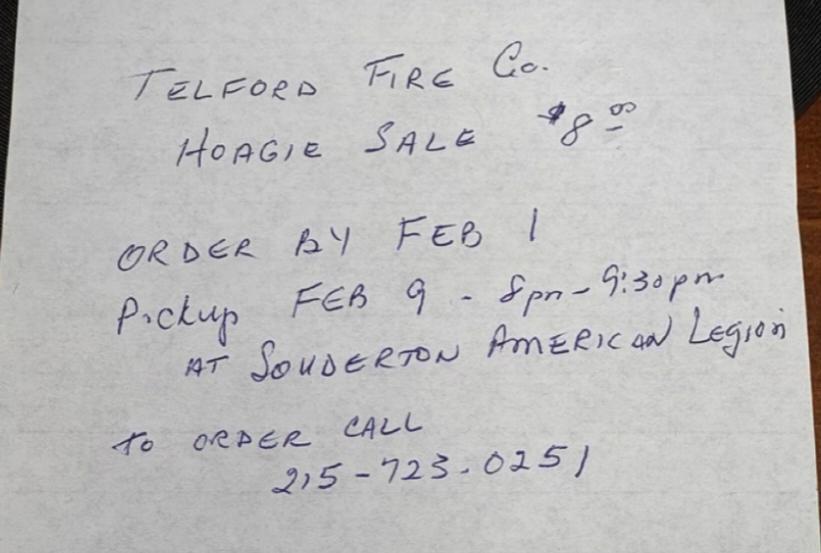 TELFORD FIRE Co.
HOAGIE SALE $8.00
ORDER BY FEB 1
Pickup FEB 9 - 8pm - 9:30pm
AT SOUDERTON AMERICAN LEGION
TO ORDER CALL
215-723-0251